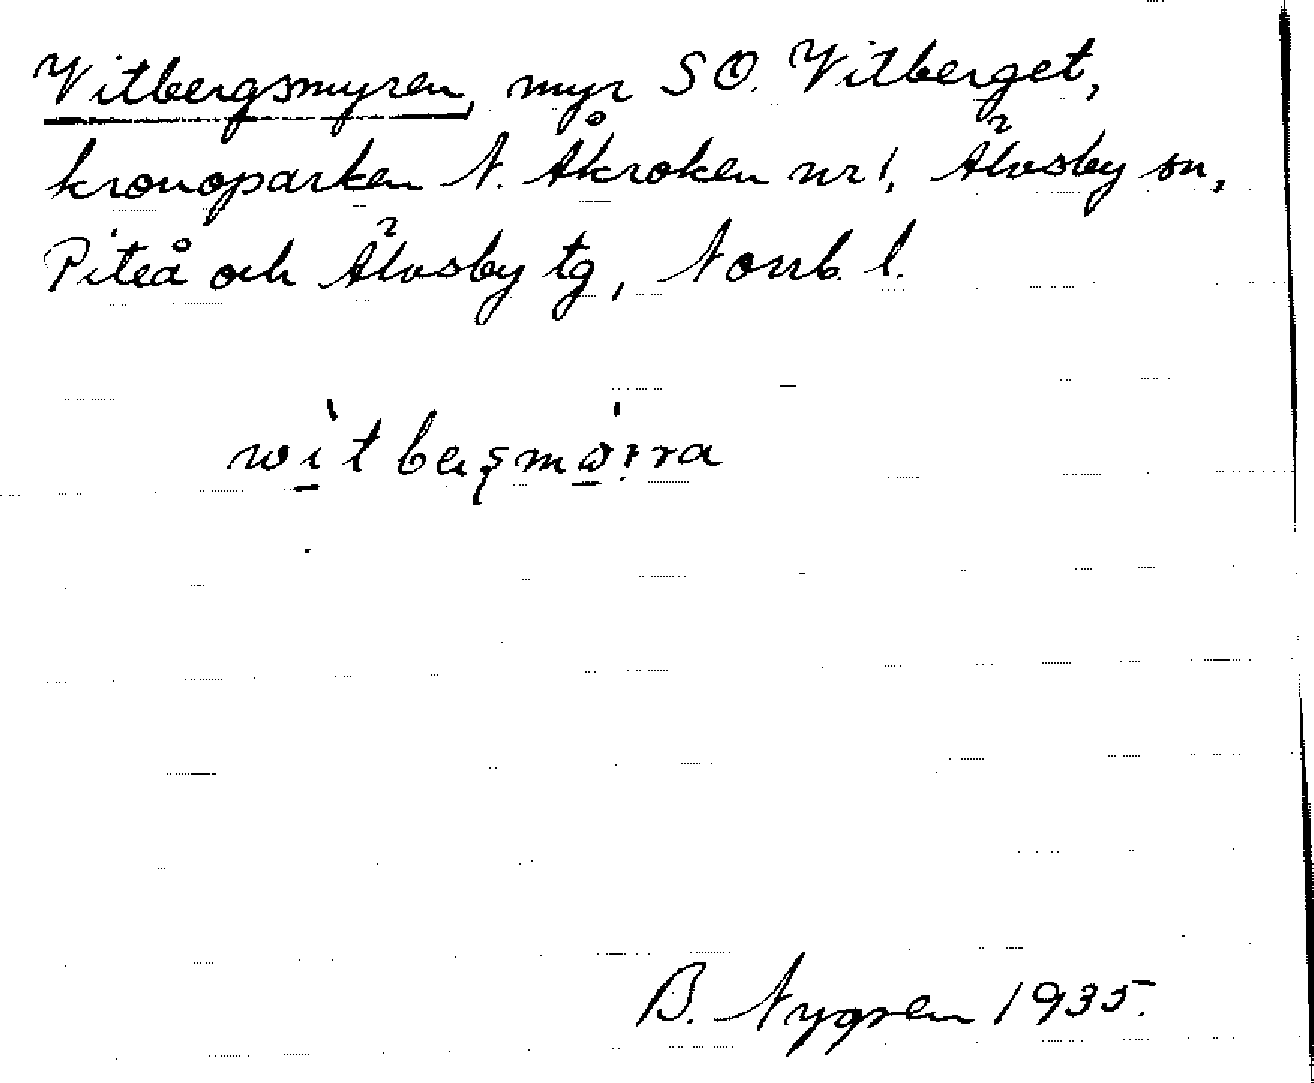 Vitbergsmyren, myr SO. Vitberget,
kronoparken N. Åkroken nr 1, Älvsby sn,
Piteå och Älvsby tg, Norrb. l.
B. Nygren 1935.